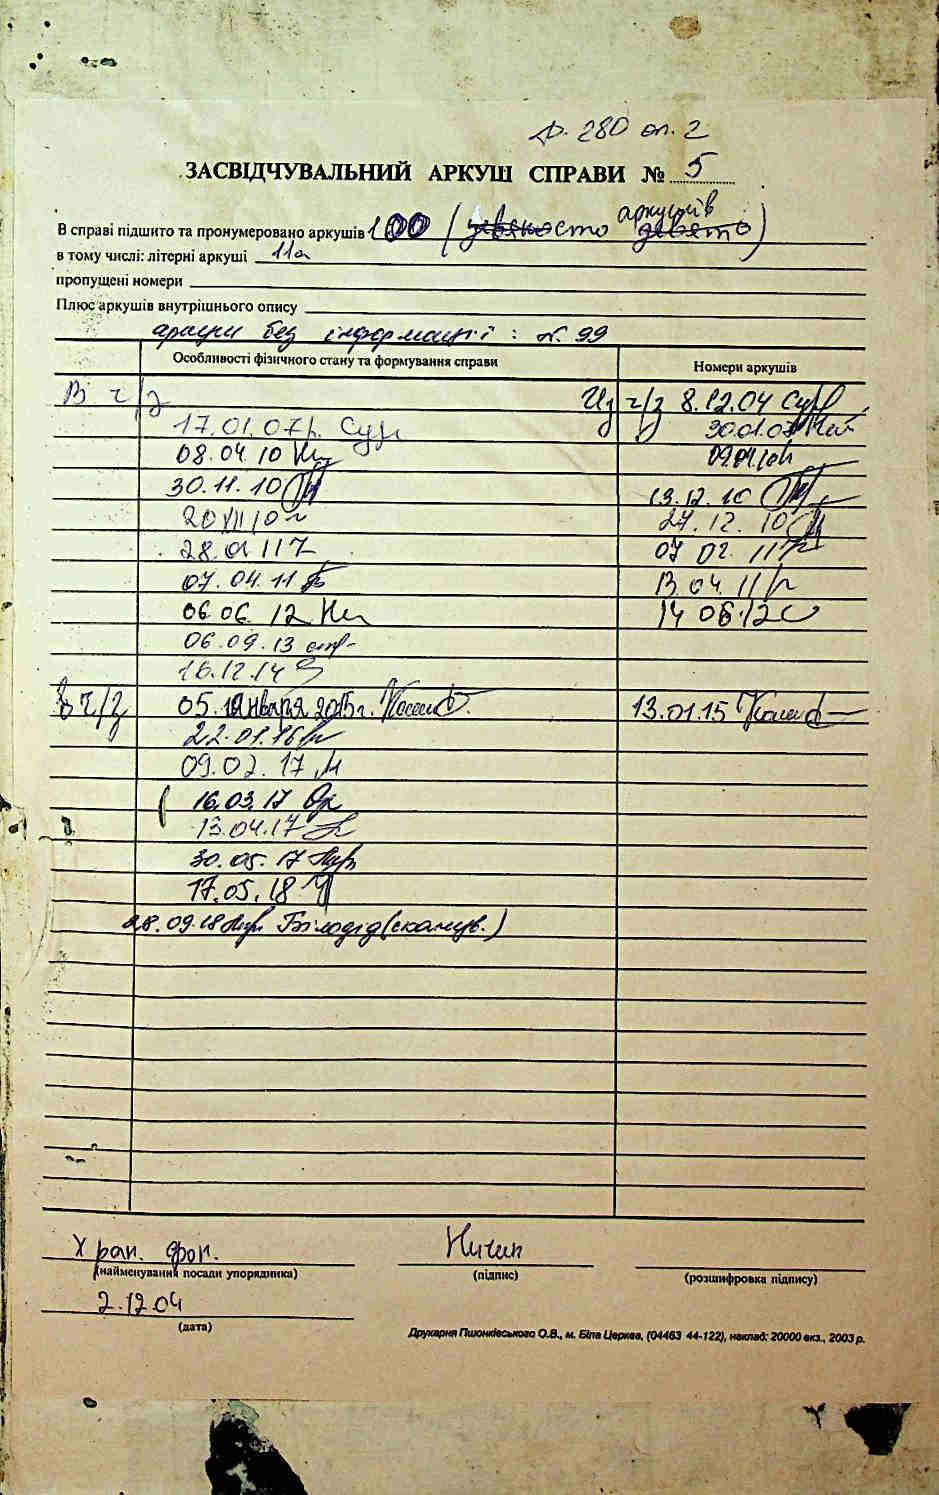 Ф. 280 оп. 2
ЗАСВІДЧУВАЛЬНИЙ АРКУШ СПРАВИ № 5
аркушів
В справі підшито та пронумеровано аркушів 100 (девяносто девять)
в тому числі: літерні аркуші 11а
пропущені номери
Плюс аркушів внутрішнього опису
аркуши без інформації: N. 99
Особливості фізичного стану та формування справи Номери аркушів
В ч/з Из ч/з 8.12.04
17.01.07 30.01.07
08.04.10 09.04.10
30.11.10 13.12.10
20 XII 10 27.12.10
28.01 11 07 02. 11
07.04.11 13.04.11
06.06.12 14 06.12
06.09.13
16.12.14
В ч/з 05. января 2015г. 13.01.15
22.01.16
09.02.17
16.03.17
13.04.17
30.05.17
17.05.18
28.09.18 Білодід (сканув.)
Хран. фон.
(найменування посади упорядника) (підпис) (розшифровка підпису)
2.12 04
(дата)
Друкарня Пшонківського О.В., м. Біла Церква, (04463 44-122), наклад: 20000 екз., 2003 р.